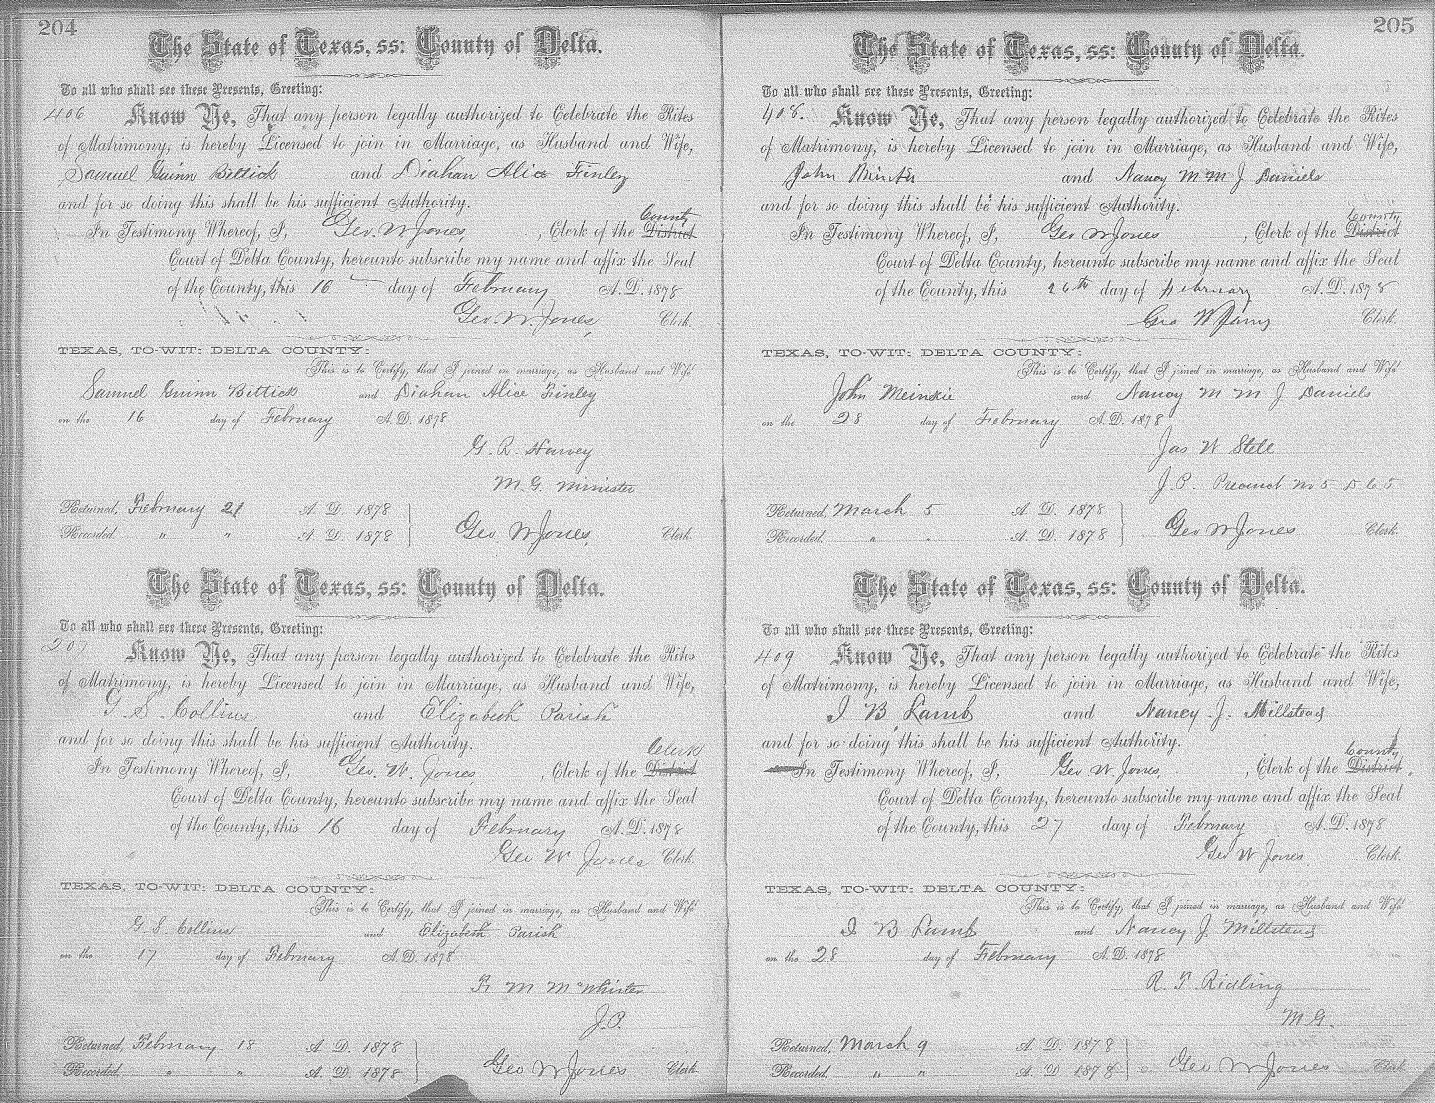 204
The State of Texas, ss: County of Delta.
To all who shall see these Presents, Greeting:
406 Know Ye, That any person legally authorized to Celebrate the Rites
of Matrimony, is hereby Licensed to join in Marriage, as Husband and Wife,
Samuel Guinn Bittick and Diahan Alice Finley
and for so doing this shall be his sufficient Authority.
County
In Testimony Whereof, I, Geo. W Jones, , Clerk of the District
Court of Delta County, hereunto subscribe my name and affix the Seal
of the County, this 16 day of February A. D. 1878
Geo. W. Jones, Clerk.
TEXAS, TO-WIT: DELTA COUNTY:
This is to Certify, that I joined in marriage, as Husband and Wife
Samuel Guinn Bittick and Diahan Alice Finley
on the 16 day of February A. D. 1878
G. R. Harvey
M. G. Minister
Returned, February 21 A. D. 1878
Recorded. " " A. D. 1878 Geo W Jones, Clerk.
The State of Texas, ss: County of Delta.
To all who shall see these Presents, Greeting:
Know Ye, That any person legally authorized to Celebrate the Rites
of Matrimony, is hereby Licensed to join in Marriage, as Husband and Wife,
G. S. Collins and Elizabeth Parish
and for so doing this shall be his sufficient Authority.
Clerk
In Testimony Whereof, I, Geo. W. Jones , Clerk of the District
Court of Delta County, hereunto subscribe my name and affix the Seal
of the County, this 16 day of February A. D. 1878
Geo W Jones Clerk.
TEXAS, TO-WIT: DELTA COUNTY:
This is to Certify, that I joined in marriage, as Husband and Wife
G. S. Collins and Elizabeth Parish
on the 17 day of February A. D. 1878
M McWhirter
J. P.
Returned, February 18 A. D. 1878
Recorded. " " A. D. 1878 Geo W Jones Clerk.
205
The State of Texas, ss: County of Delta.
To all who shall see these Presents, Greeting:
408. Know Ye, That any person legally authorized to Celebrate the Rites
of Matrimony, is hereby Licensed to join in Marriage, as Husband and Wife,
John and Nancy M M J Daniels
and for so doing this shall be his sufficient Authority.
County
In Testimony Whereof, I, Geo W Jones , Clerk of the District
Court of Delta County, hereunto subscribe my name and affix the Seal
of the County, this 26th day of February A. D. 1878
Geo W Jones Clerk.
TEXAS, TO-WIT: DELTA COUNTY:
This is to Certify, that I joined in marriage, as Husband and Wife
John Meinkie and Nancy M M J Daniels
on the 28 day of February A. D. 1878
Jas W Stell
J. P. Precinct No 5 D C
Returned, March 5 A. D. 1878
Recorded. " " A. D. 1878 Geo W Jones Clerk.
The State of Texas, ss: County of Delta.
To all who shall see these Presents, Greeting:
409 Know Ye, That any person legally authorized to Celebrate the Rites
of Matrimony, is hereby Licensed to join in Marriage, as Husband and Wife,
J B Lamb and Nancy J. Millstead
and for so doing this shall be his sufficient Authority.
County
In Testimony Whereof, I, Geo W Jones, , Clerk of the District
Court of Delta County, hereunto subscribe my name and affix the Seal
of the County, this 27 day of February A. D. 1878
Geo W Jones Clerk.
TEXAS, TO-WIT: DELTA COUNTY:
This is to Certify, that I joined in marriage, as Husband and Wife
J B Lamb and Nancy J. Millstead
on the 28 day of February A. D. 1878
R. F. Ridling
M. G.
Returned, March 9 A. D. 1878
Recorded. " " A. D. 1878 Geo W Jones Clerk